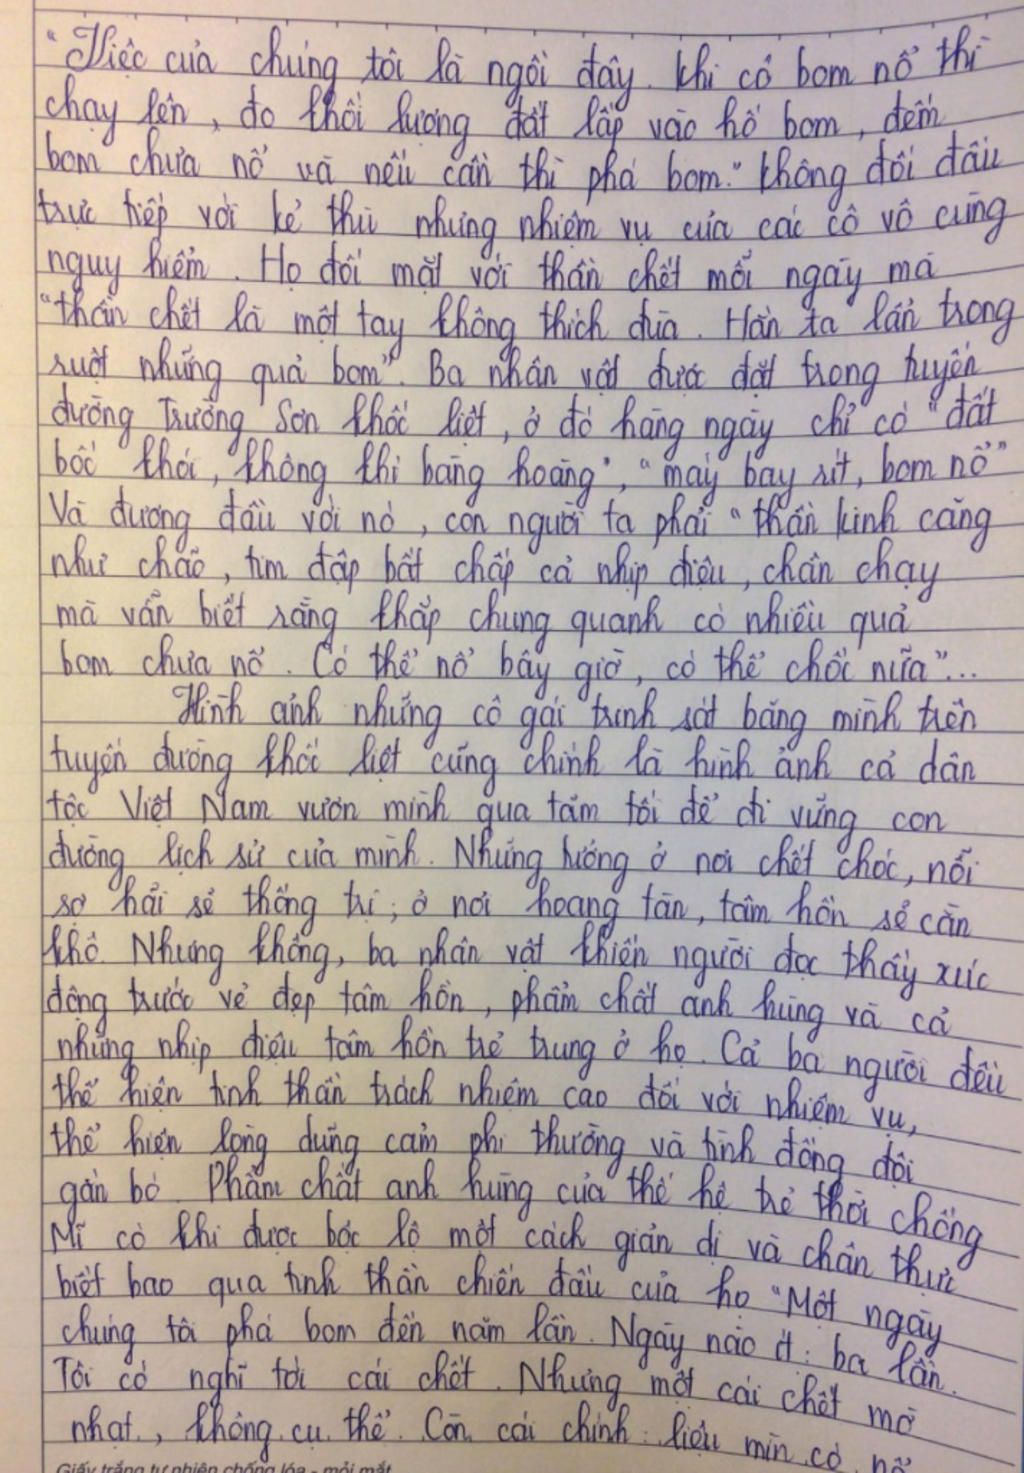 "Việc của chúng tôi là ngồi đây. Khi có bom nổ thì
chạy lên, đo khối lượng đất lấp vào hố bom, đếm
bom chưa nổ và nếu cần thì phá bom." Không đối đầu
trực tiếp với kẻ thù nhưng nhiệm vụ của các cô vô cùng
nguy hiểm. Họ đối mặt với thần chết mỗi ngày mà
"thần chết là một tay không thích đùa. Hắn ta lẩn trong
ruột những quả bom". Ba nhân vật được đặt trong tuyến
đường Trường Sơn khốc liệt, ở đó hàng ngày chỉ có "đất
bốc khói, không khí bàng hoàng", "máy bay rít, bom nổ"
Và đương đầu với nó, con người ta phải "thần kinh căng
như chão, tim đập bất chấp cả nhịp điệu, chân chạy
mà vẫn biết rằng khắp chung quanh có nhiều quả
bom chưa nổ. Có thể nổ bây giờ, có thể chốc nữa"...
Hình ảnh những cô gái trinh sát băng mình trên
tuyến đường khốc liệt cũng chính là hình ảnh cả dân
tộc Việt Nam vươn mình qua tăm tối để đi vững con
đường lịch sử của mình. Những tưởng ở nơi chết chóc, nỗi
sợ hãi sẽ thống trị; ở nơi hoang tàn, tâm hồn sẽ cằn
khô. Nhưng không, ba nhân vật khiến người đọc thấy xúc
động trước vẻ đẹp tâm hồn, phẩm chất anh hùng và cả
những nhịp điệu tâm hồn trẻ trung ở họ. Cả ba người đều
thể hiện tinh thần trách nhiệm cao đối với nhiệm vụ,
thể hiện lòng dũng cảm phi thường và tình đồng đội
gắn bó. Phẩm chất anh hùng của thế hệ trẻ thời chống
Mĩ có khi được bộc lộ một cách giản dị và chân thực
biết bao qua tinh thần chiến đấu của họ "Một ngày
chúng tôi phá bom đến năm lần. Ngày nào ít: ba lần.
Tôi có nghĩ tới cái chết. Nhưng một cái chết mờ
nhạt, không cụ thể. Còn cái chính: liệu mìn có nổ
Giấy trắng tự nhiên chống lóa - mỏi mắt